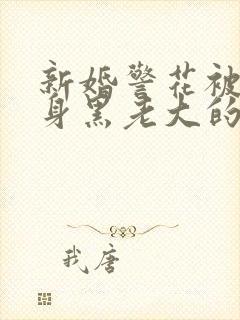 新婚警花被
身黑老大的
我唐